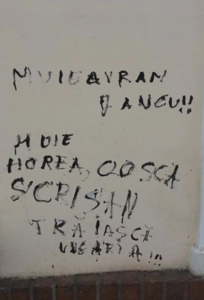 MUIE AVRAM
IANCU!!
MUIE
HOREA, CLOSCA
SI CRISAN
TRĂIASCĂ
UNGARIA!!!